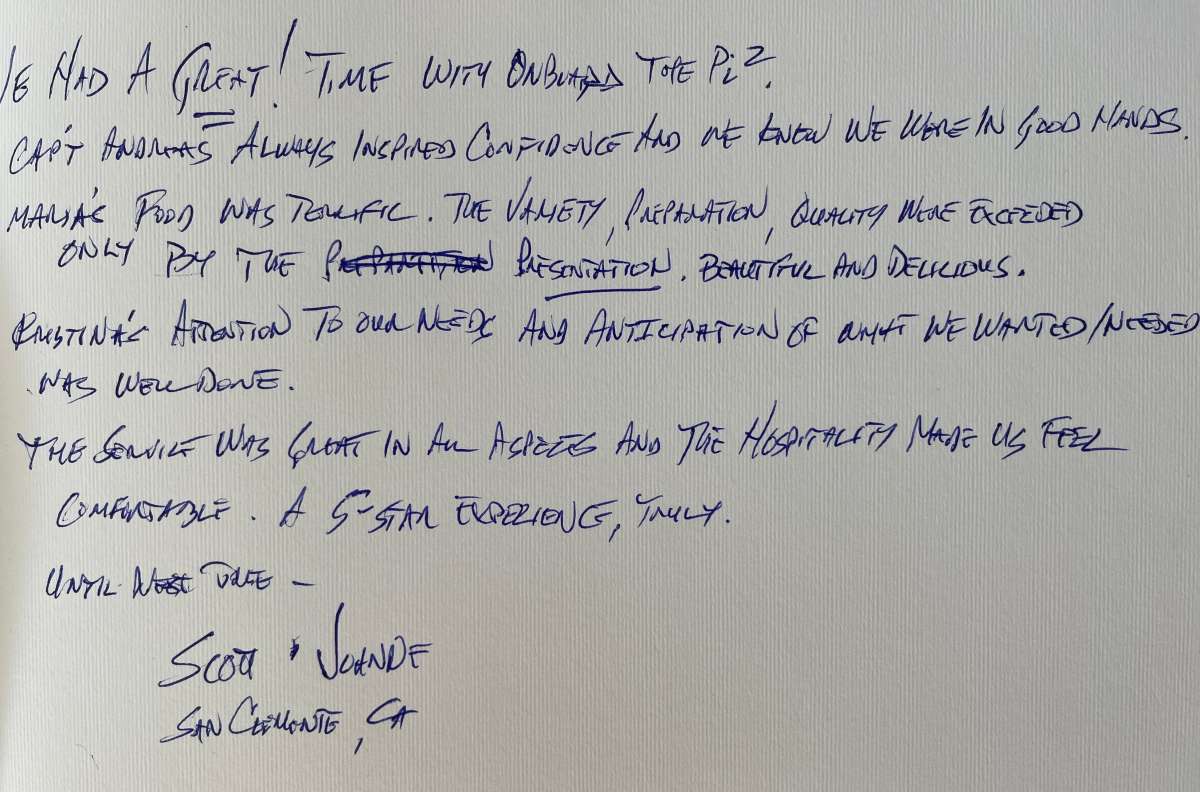 WE HAD A GREAT! TIME WITH ONBOARD THE Pi2.
CAP'T ANDREAS ALWAYS INSPIRED CONFIDENCE AND WE KNEW WE WERE IN GOOD HANDS.
MARIA'S FOOD WAS TERRIFIC. THE VARIETY, PREPARATION, QUALITY WERE EXCEEDED
ONLY BY THE PRESENTATION. BEAUTIFUL AND DELICIOUS.
KRISTINA'S ATTENTION TO OUR NEEDS AND ANTICIPATION OF WHAT WE WANTED/NEEDED
WAS WELL DONE.
THE SERVICE WAS GREAT IN ALL ASPECTS AND THE HOSPITALITY MADE US FEEL
COMFORTABLE. A 5-STAR EXPERIENCE, TRULY.
UNTIL NEXT TIME -
SCOTT
SAN CLEMENTE, CA